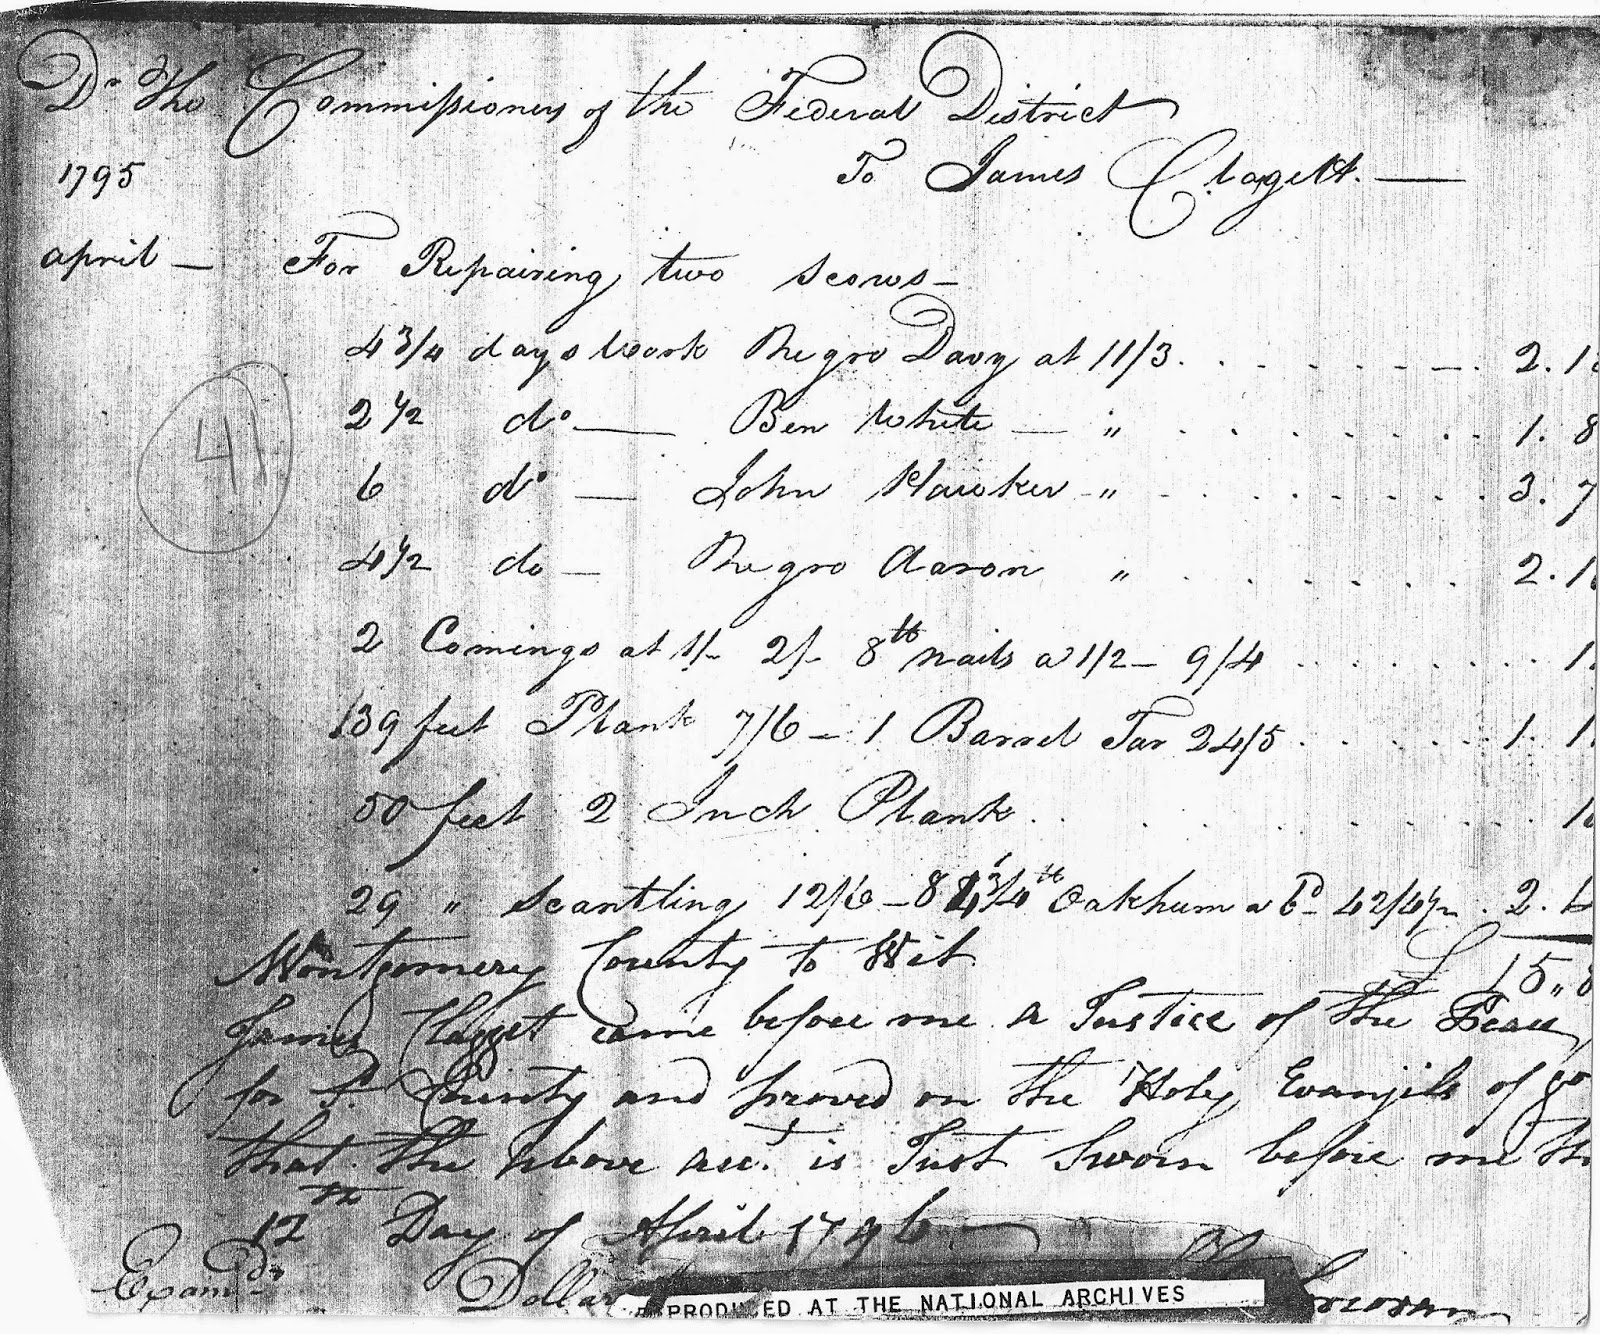 Dr The Commissioners of the Federal District
1795 To James Clagett.
april — For Repairing two scows —
41
4 3/4 days Work Negro Davy at 11/3 2.1
2 1/2 do — Ben White — " 1. 8
6 do — John Hawker — " 3. 7
4 1/2 do — Negro Aaron " 2. 1
2 Comings at 1/- 2/- 8 lb nails a 1/2 — 9/4 1
139 feet Plank 7/6 — 1 Barrel Tar 24/5 1. 1
50 feet 2 Inch Plank 1
29 " scantling 12/6 — 84 3/4 lb Oakhum a 6d 42/4 1/2 . 2.
£ 15,, 8
Montgomery County to Wit
James Clagget came before me a Justice of the Peace
for sd. County and proved on the Holy Evanjils of
that the above acct. is Just Sworn before me
12th Day of April 1796 —
Examd. Dollar
REPRODUCED AT THE NATIONAL ARCHIVES
Corcoran